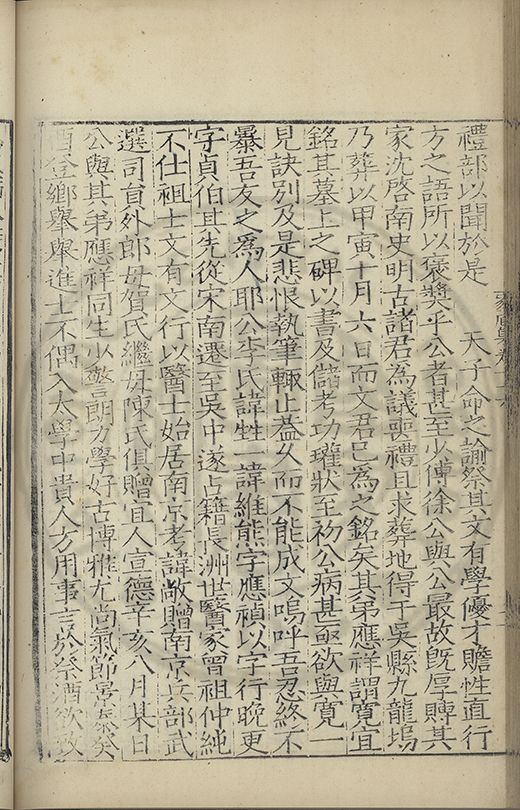 禮部以聞於是　天子命之諭祭其文有學優才贍性直行
方之語所以褒奬乎公者甚至少傅徐公與公最故旣厚賻其
家沈啓南史明古諸君爲議喪禮且求葬地得于吳縣九龍塢
乃葬以甲寅十月六日而文君已爲之銘矣其弟應祥謂寬宜
銘其墓上之碑以書及儲考功瓘狀至初公病甚亟欲與寬一
見訣別及是悲恨執筆輙止葢久而不能成文嗚呼吾忍終不
暴吾友之爲人耶公李氏諱甡一諱維熊字應禎以字行晚更
字貞伯其先從宋南遷至吳中遂占籍長洲世醫家曾祖仲純
不仕祖士文有文行以醫士始居南京考諱敞贈南京兵部武
選司員外郎母賀氏繼母陳氏俱贈宜人宣德辛亥八月某日
公與其弟應祥同生少警朗力學好古博雅尤尚氣節景泰癸
酉登鄉舉舉進士不偶入太學中貴人方用事言於祭酒欲致